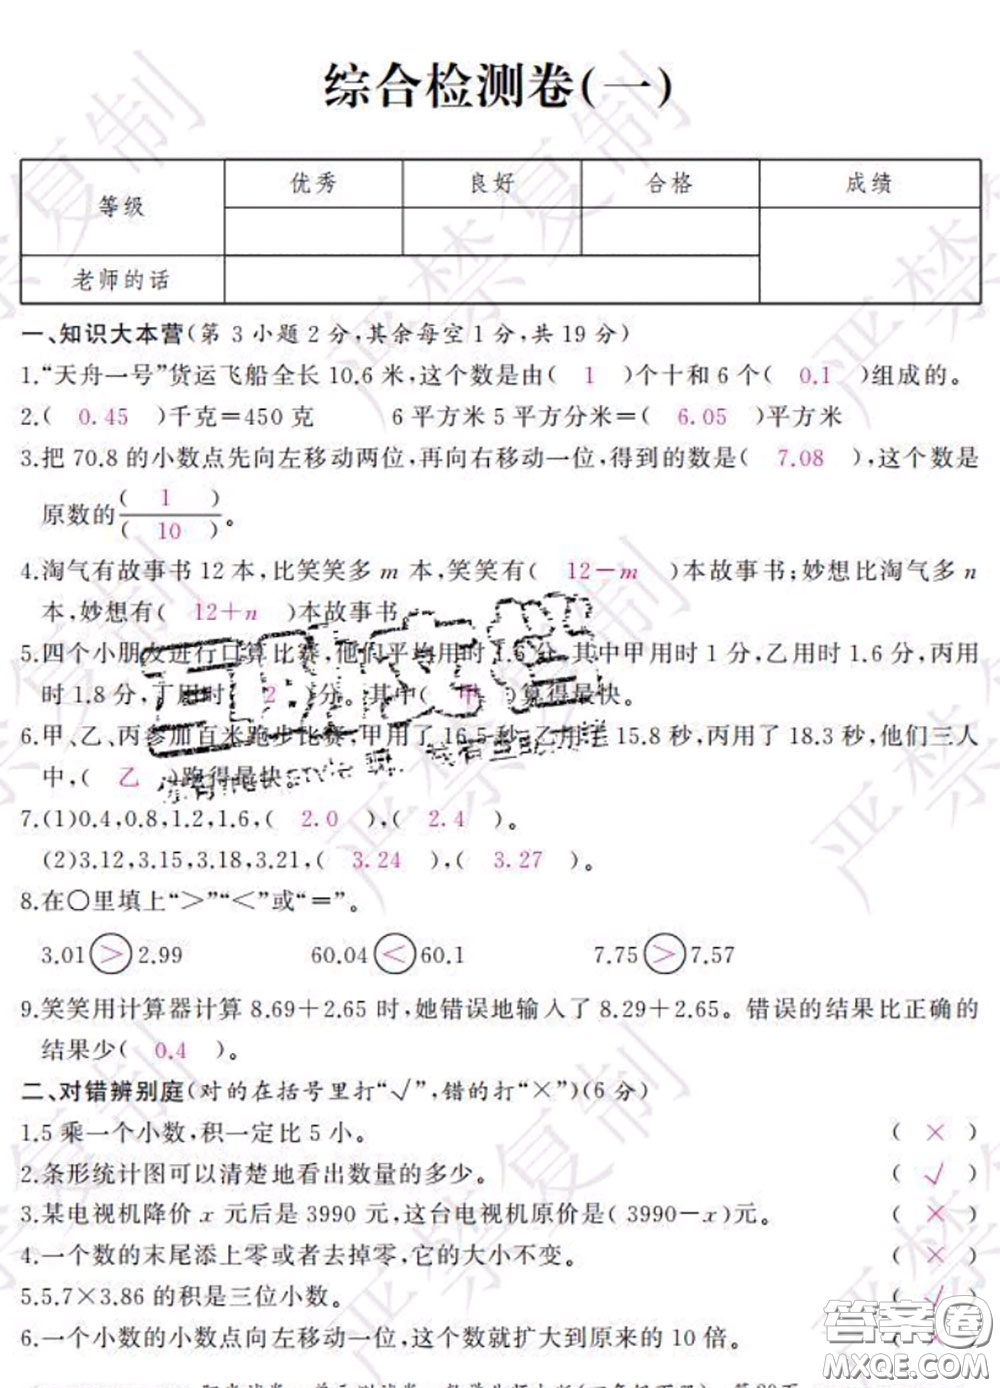 综合检测卷(一)
等级 优秀 良好 合格 成绩
老师的话
一、知识大本营(第 3 小题 2 分,其余每空 1 分,共 19 分)
1.“天舟一号”货运飞船全长 10.6 米,这个数是由( 1 )个十和 6 个( 0.1 )组成的。
2.( 0.45 )千克=450 克 6 平方米 5 平方分米=( 6.05 )平方米
3.把 70.8 的小数点先向左移动两位,再向右移动一位,得到的数是( 7.08 ),这个数是
原数的( 1 )/( 10 )。
4.淘气有故事书 12 本,比笑笑多 m 本,笑笑有( 12-m )本故事书;妙想比淘气多 n
本,妙想有( 12+n )本故事书
5.四个小朋友进行口算比赛,他们平均用时 1.6 分,其中甲用时 1 分,乙用时 1.6 分,丙用
时 1.8 分,丁用时( 2 )分。其中( 甲 )算得最快。
6.甲、乙、丙参加百米跑步比赛,甲用了 16.5 秒,乙用了 15.8 秒,丙用了 18.3 秒,他们三人
中,( 乙 )跑得最快。
7.(1)0.4,0.8,1.2,1.6,( 2.0 ),( 2.4 )。
(2)3.12,3.15,3.18,3.21,( 3.24 ),( 3.27 )。
8.在○里填上“>”“<”或“=”。
3.01 > 2.99 60.04 < 60.1 7.75 > 7.57
9.笑笑用计算器计算 8.69+2.65 时,她错误地输入了 8.29+2.65。错误的结果比正确的
结果少( 0.4 )。
二、对错辨别庭(对的在括号里打“√”,错的打“×”)(6 分)
1.5 乘一个小数,积一定比 5 小。 ( × )
2.条形统计图可以清楚地看出数量的多少。 ( √ )
3.某电视机降价 x 元后是 3990 元,这台电视机原价是(3990-x)元。 ( × )
4.一个数的末尾添上零或者去掉零,它的大小不变。 ( × )
5.5.7×3.86 的积是三位小数。 ( √ )
6.一个小数的小数点向左移动一位,这个数就扩大到原来的 10 倍。 ( × )
答案圈
MXQE.COM
严禁复制